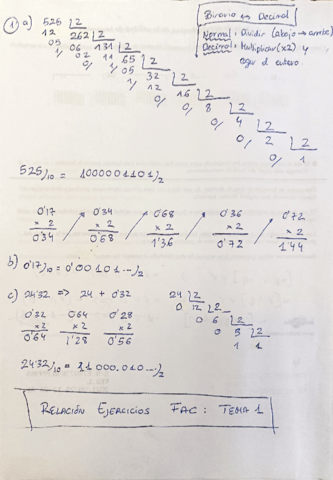 Binario ↔ Decimal
Normal: Dividir (abajo → arriba)
Decimal: Multiplicar (x2) y
coger el entero
1 a) 525 |2
12 262 |2
05 06 131 |2
1/ 02 11 65 |2
0/ 1/ 05 32 |2
1/ 12 16 |2
0/ 0/ 8 |2
0/ 4 |2
0/ 2 |2
0/ 1
525/10 = 1000001101/2
0'17 0'34 0'68 0'36 0'72
x 2 x 2 x 2 x 2 x 2
0'34 0'68 1'36 0'72 1'44
b) 0'17/10 = 0'00101.../2
c) 24'32 => 24 + 0'32 24 |2
0'32 0'64 0'28 0 12 |2
x2 x2 x2 0 6 |2
0'64 1'28 0'56 0 3 |2
1 1
24'32/10 = 11000,010.../2
RELACIÓN EJERCICIOS FAC: TEMA 1